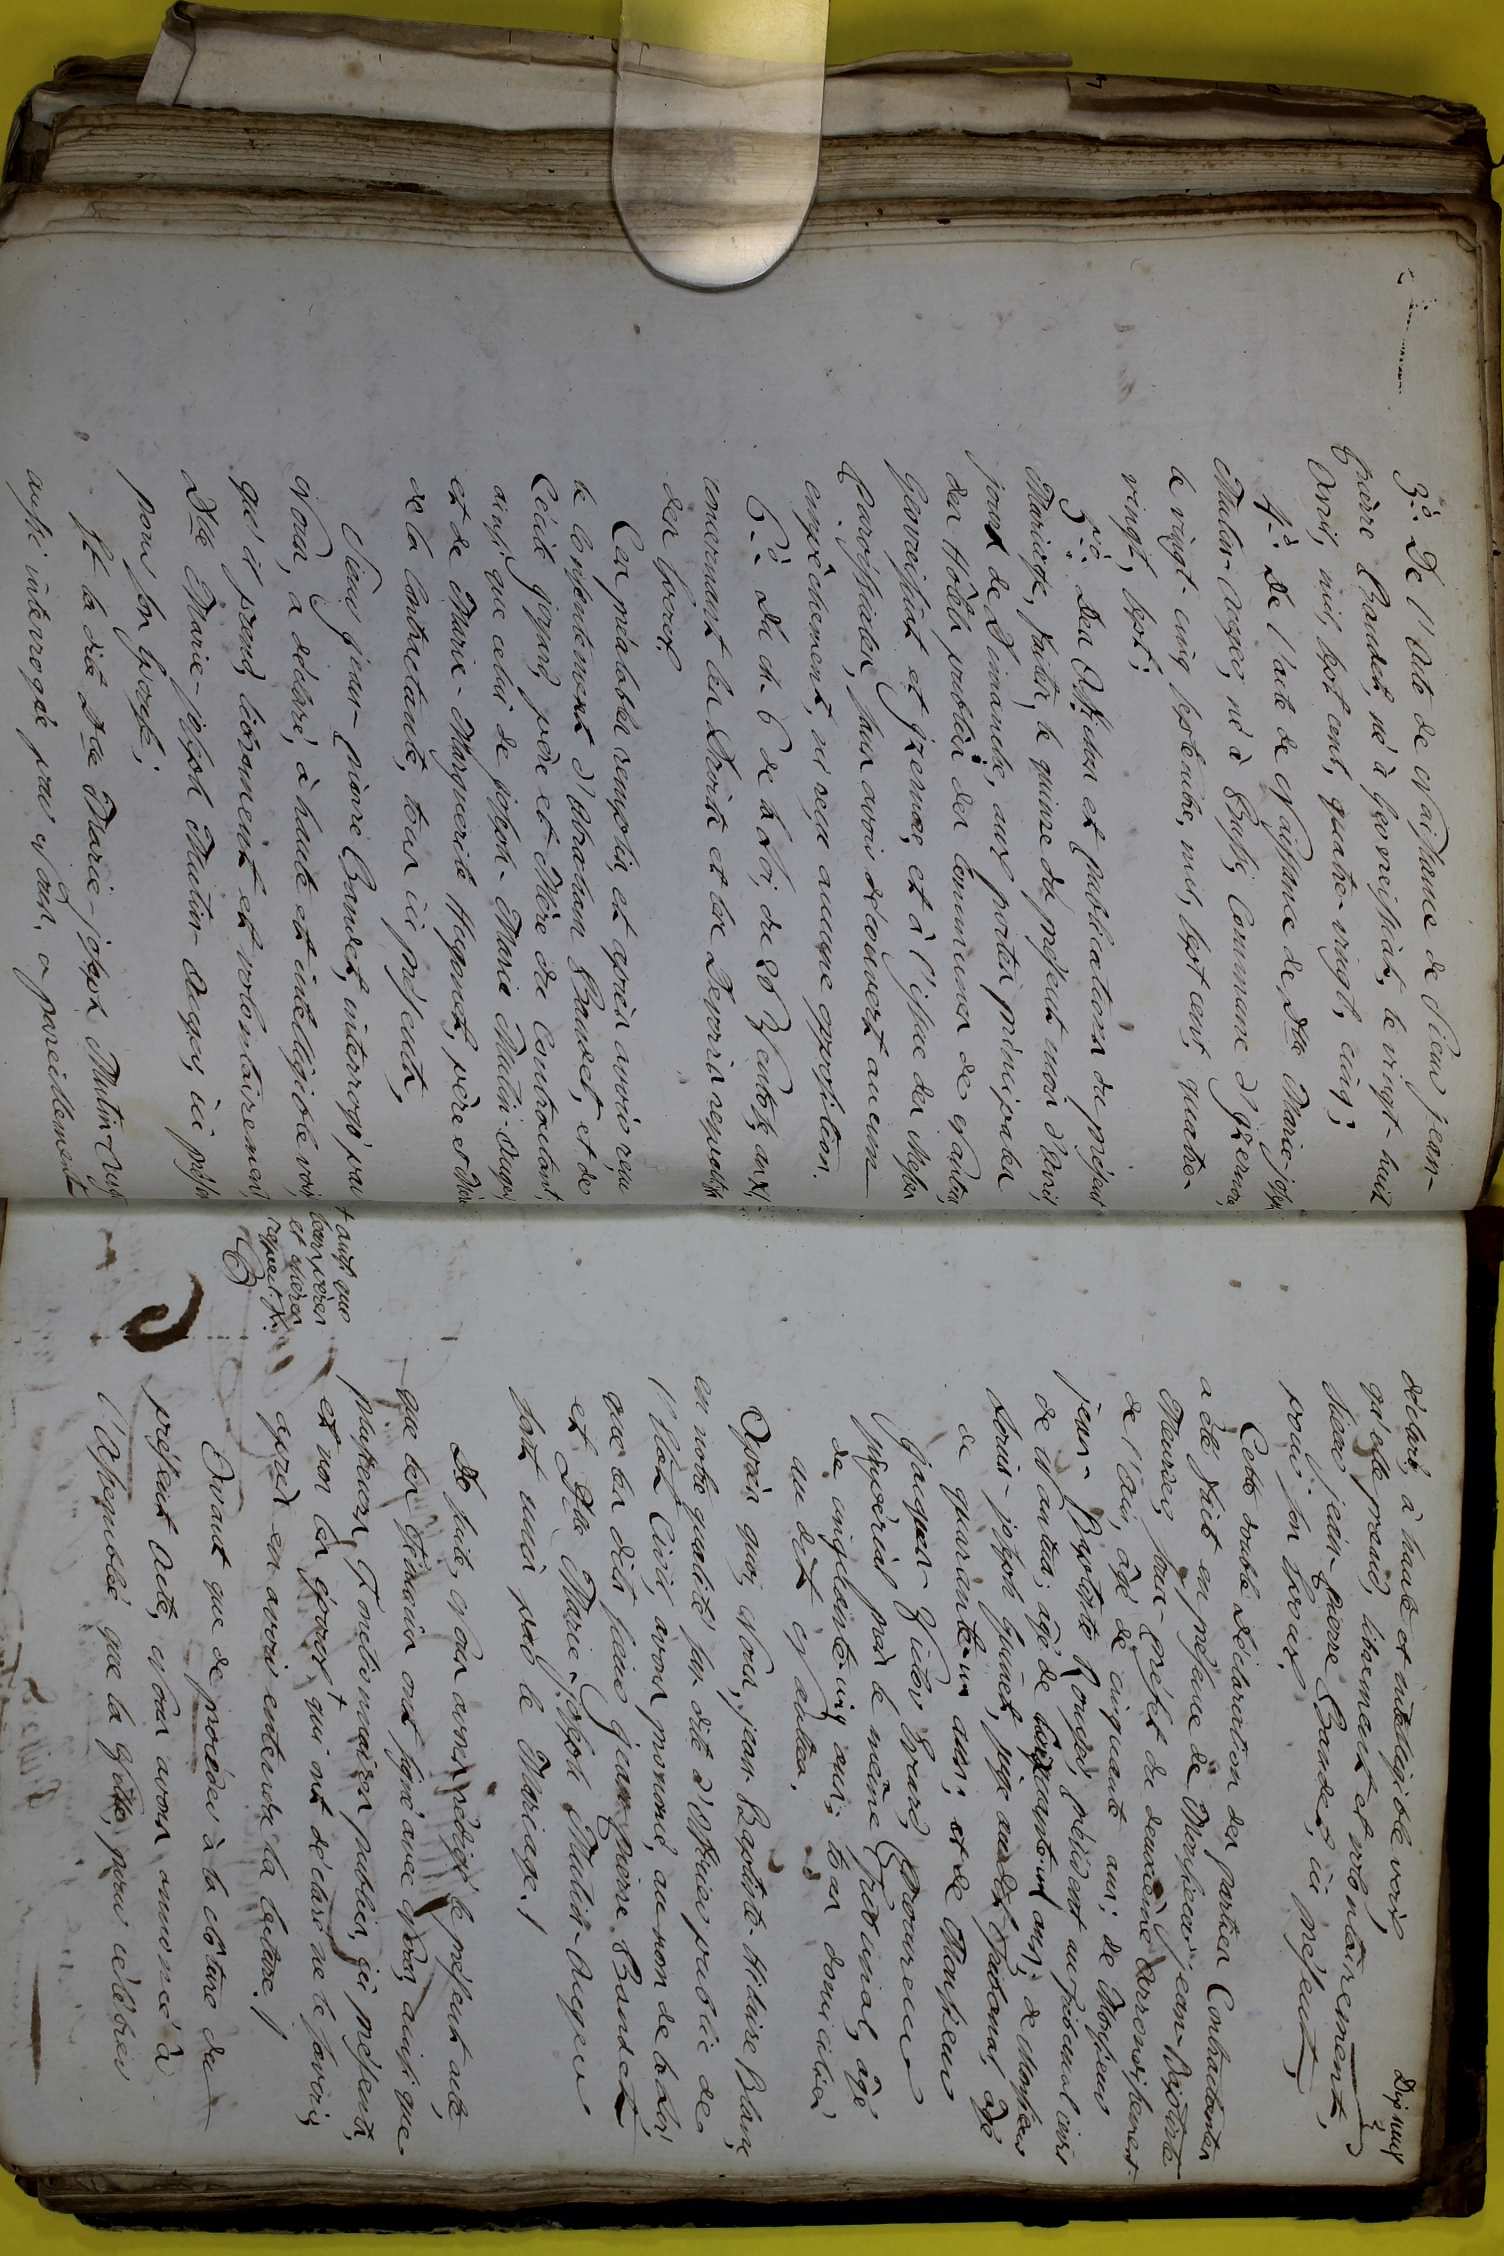 3.º De l'Acte de Naissance de Sieur jean-
Pierre Baudet, né à Geovreissiat, le vingt-huit
Avril, mil, sept cent, quatre-vingt, cinq;
4.º De l'acte de Naissance de Dlle Marie-joseph
Mutin-Auger, né à Bussi, Commune d'Izernore,
le vingt-cinq septembre, mil, sept cent, quatre-
vingt, sept;
5.º Des Affiches et publications du présent
Mariage, faites, le quinze du présent mois d'avril,
jour de Dimanche, aux portes principales
des Hôtels publics des Communes de Nantua,
Geovreissiat et Izernore, et à l'issue des Messes
Paroissiales, sans avoir découvert aucun
empêchement, ni reçu aucune opposition.
6.º Du ch. 6 de la Loi, du 20 Ventose, an XI,
concernant les Droits et les Devoirs respectifs
des Epoux.
Ces préalables remplis, et après avoir reçu
le Consentement d'Abraham Baudet, et de
Cécile père et Mère du Contractant;
ainsi que celui de joseph-Marie Mutin-Auger,
et de Marie-Marguerite Hugonet, père et Mère
de la Contractante, tous ici présents,
Sieur jean-Pierre Baudet, interrogé par
Nous, a déclaré, à haute et intelligible voix,
qu'il prend, librement et volontairement,
Dlle Marie-joseph Mutin-Auger, ici présente
pour son Epouse;
Et la dite Dlle Marie-joseph Mutin-Auger
aussi interrogée par Nous, a pareillement
Dix neuf
déclaré, à haute et intelligible voix,
qu'elle prend, librement et volontairement,
Sieur jean-Pierre Baudet, ici présent,
pour son Epoux.
Cette double déclaration des parties Contractantes
a été faite en présence de Monsieur jean-Baptiste
sous-Préfet du deuxième Arrondissement
de l'Ain, âgé de cinquante ans; de Monsieur
jean-Baptiste Rouyer, président au Tribunal civil
de Nantua, âgé de ans; de Monsieur
Louis-joseph juge au dit Tribunal, âgé
de quarante-un ans; et de Monsieur
Jacques-Victor Procureur
impérial près le même Tribunal, âgé
de cinquante-cinq ans; tous domiciliés
au dit Nantua.
Après quoi, Nous, jean-Baptiste-Hilaire Blanc,
en notre qualité sus dite d'Officier public de
l'Etat Civil, avons prononcé, au nom de la Loi,
que les dits sieur jean-Pierre Baudet
et Dlle Marie-joseph Mutin-Auger
sont unis par le Mariage./
De suite, Nous avons rédigé le présent acte,
que les témoins ont signé avec Nous, ainsi que
plusieurs Fonctionnaires publics, ici présents,
et non les époux + qui ont déclaré ne le savoir,
après en avoir entendu la lecture./
+ ainsi que
leurs pères
et mères
respectifs.
Avant que de procéder à la clôture du
présent Acte, Nous avons annoncé à
l'Assemblée que la fête, pour célébrer